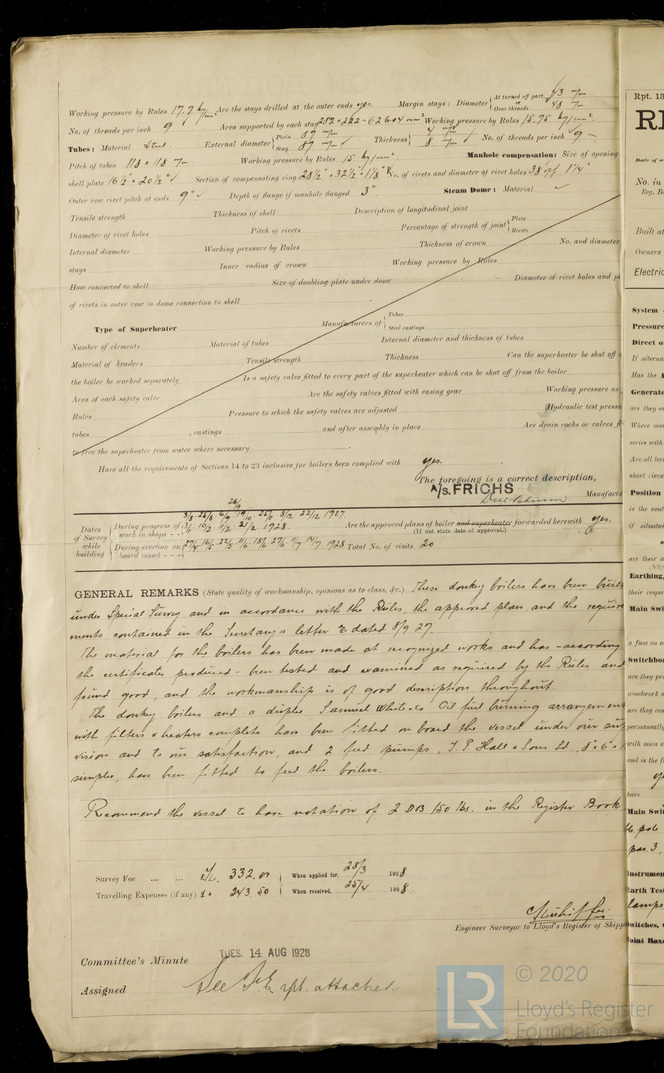 Working pressure by Rules 17.7 kg/cm² Are the stays drilled at the outer ends yes. Margin stays: Diameter { At turned off part, or Over threads 43 m/m 48 m/m
No. of threads per inch 9 Area supported by each stay 282 × 222 = 62604 mm² Working pressure by Rules 15.75 kg/cm²
Tubes: Material Steel External diameter { Plain 89 m/m Stay 89 m/m Thickness { 4 m/m 8 m/m No. of threads per inch 9
Pitch of tubes 118 × 118 m/m Working pressure by Rules 15 kg/cm² Manhole compensation: Size of opening
shell plate 16½" × 20½" Section of compensating ring 28½" × 32½" × 1 1/8" No. of rivets and diameter of rivet holes 38 of 1¼"
Outer row rivet pitch at ends 9" Depth of flange if manhole flanged 3" Steam Dome: Material
Tensile strength Thickness of shell Description of longitudinal joint
Diameter of rivet holes Pitch of rivets Percentage of strength of joint { Plate Rivets
Internal diameter Working pressure by Rules Thickness of crown No. and diameter
stays Inner radius of crown Working pressure by Rules
How connected to shell Size of doubling plate under dome Diameter of rivet holes and pi
of rivets in outer row in dome connection to shell
Type of Superheater Manufacturers of { Tubes Steel castings
Number of elements Material of tubes Internal diameter and thickness of tubes
Material of headers Tensile strength Thickness Can the superheater be shut off
the boiler be worked separately Is a safety valve fitted to every part of the superheater which can be shut off from the boiler
Area of each safety valve Are the safety valves fitted with easing gear Working pressure as
Rules Pressure to which the safety valves are adjusted Hydraulic test pressu
tubes , castings and after assembly in place Are drain cocks or valves fi
to free the superheater from water where necessary
Have all the requirements of Sections 14 to 23 inclusive for boilers been complied with yes.
The foregoing is a correct description,
A/S. FRICHS Manufactu
Dates of Survey while building { During progress of work in shops - - 1927. 1928. Are the approved plans of boiler and superheater forwarded herewith yes.
(If not state date of approval.)
During erection on board vessel - - - 1928 Total No. of visits 20
GENERAL REMARKS (State quality of workmanship, opinions as to class, &c.) These donkey boilers have been built
under Special Survey and in accordance with the Rules, the approved plans and the require
ments contained in the Secretary's letter E dated 8/9 27.
The material for the boilers has been made at recognized works and has - according
the certificates produced - been tested and examined as required by the Rules and
found good, and the workmanship is of good description throughout.
The donkey boilers and a duplex Samuel White & Co Oil fuel burning arrangement
with filters & heaters complete have been fitted on board the vessel under our sup
vision and to our satisfaction, and 2 feed pumps, J.P. Hall & Sons Ld, 8 × 6 ×
simplex, have been fitted to feed the boilers.
Recommend the vessel to have notation of 2 DB 150 lbs. in the Register Book
Survey Fee ... ... 332.00 When applied for, 28/3 1928
Travelling Expenses (if any) 243.50 When received, 25/4 1928.
Engineer Surveyor to Lloyd's Register of Shipp
Committee's Minute TUES. 14 AUG 1928
Assigned See F.E. rpt. attached
Rpt. 13
RE
Date of w
No. in
Reg. B
Built at
Owners
Electric
System
Pressure
Direct o
If alterna
Has the A
Generato
are they o
Where mo
series with
Are all ter
short circu
Position
is the vent
if situate
are their a
Earthing,
their respec
Main Swi
a fuse on e
Switchboa
are they pro
woodwork o
are they con
permanently
with mica o
and is the f
bars
Main Swit
par. 3,
Instrumen
Earth Test
lamps
Switches, C
Joint Boxe
LR © 2020
Lloyd's Register
Foundation